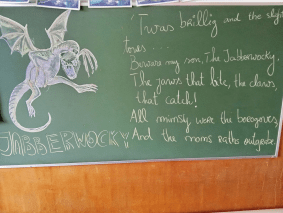 'Twas brillig and the slighy
toves ....
Beware my son, The Jabberwocky,
The jaws that bite, the claws,
that catch!
All mimsy were the borogoves,
And the moms raths outgrabe.
JABBERWOCKY